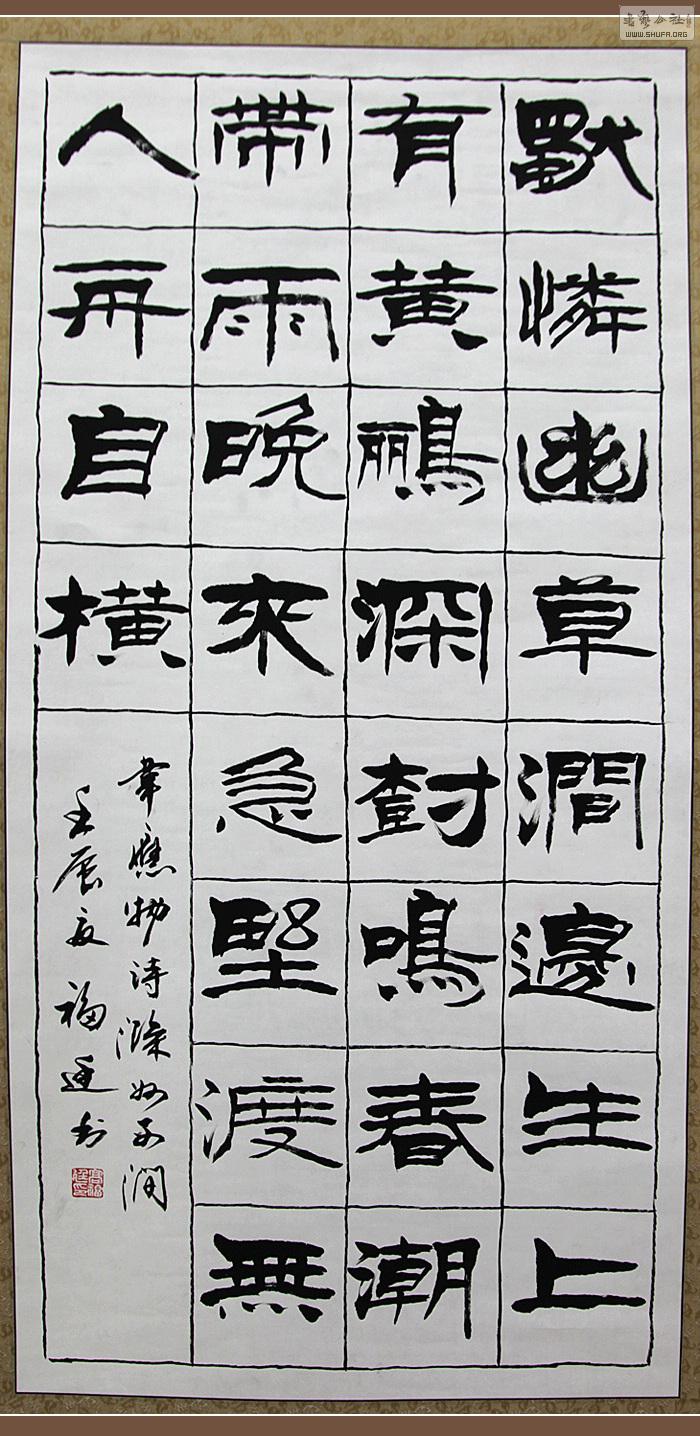 獨憐幽草澗邊生上
有黄鸝深樹鳴春潮
帶雨晚来急野渡無
人舟自横
韋應物詩滁州西澗
壬辰夏福廷书
书艺公社
WWW.SHUFA.ORG